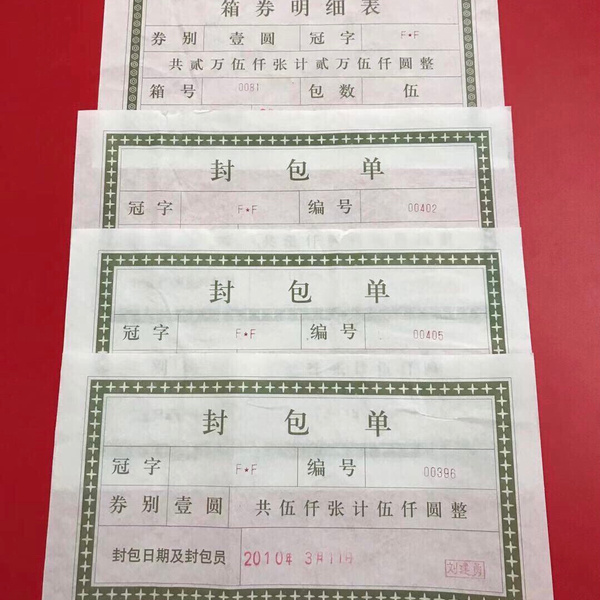 箱券明细表
券别 壹圆 冠字 F★F
共贰万伍仟张计贰万伍仟圆整
箱号 0081 包数 伍
封包单
冠字 F★F 编号 00402
封包单
冠字 F★F 编号 00405
封包单
冠字 F★F 编号 00396
券别 壹圆 共伍仟张计伍仟圆整
封包日期及封包员 2010年 3月11日